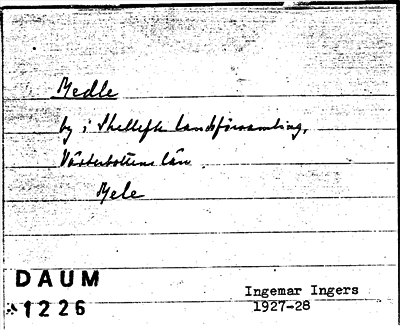 Medle
by i Skellefte landsförsamling,
Västerbottens län
Mele
DAUM
1226
Ingemar Ingers
1927-28